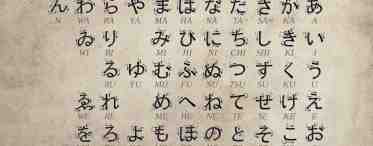 ん わ ら や ま は な た さ か あ
N WA RA YA MA HA NA TA SA KA A
ゐ り み ひ に ち し き い
WI RI MI HI NI CHI SHI KI I
る ゆ む ふ ぬ つ す く う
RU YU MU FU NU TSU SU KU U
ゑ れ め へ ね て せ け え
WE RE ME HE NE TE SE KE E
を ろ よ も ほ の と そ こ お